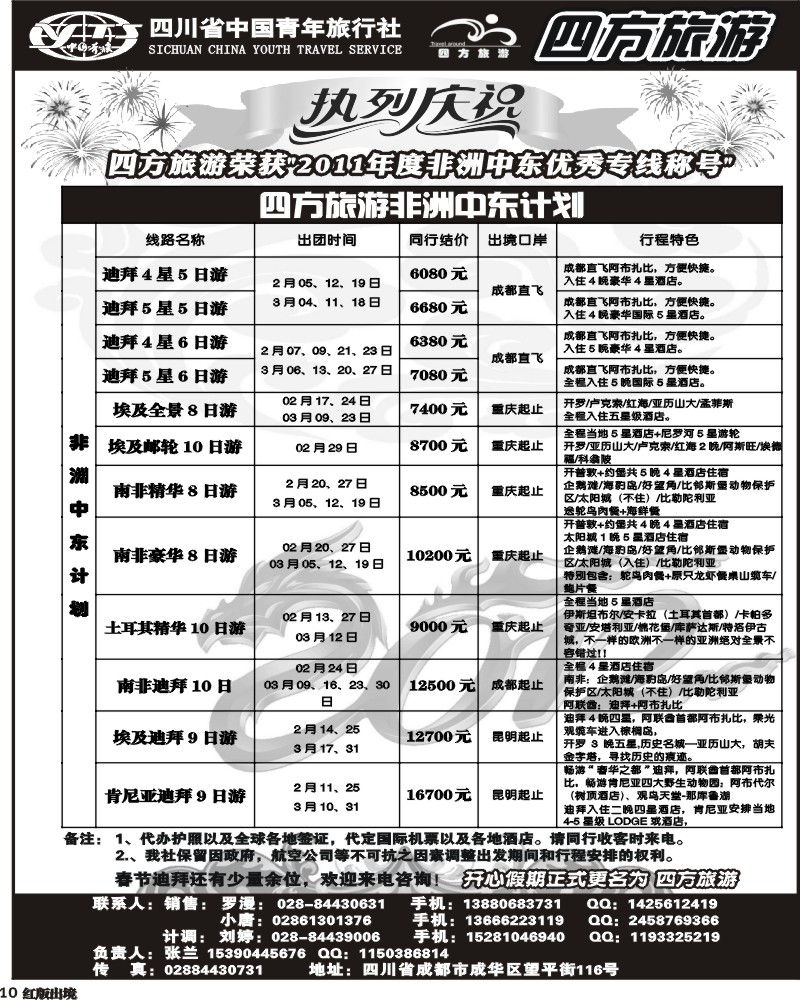 中国青旅
四川省中国青年旅行社
SICHUAN CHINA YOUTH TRAVEL SERVICE
Travel around
四方旅游
四方旅游
执列庆祝
四方旅游荣获"2011年度非洲中东优秀专线称号"
四方旅游非洲中东计划
线路名称 出团时间 同行结价 出境口岸 行程特色
非洲中东计划
迪拜4星5日游 2月05、12、19日 6080元 成都直飞 成都直飞阿布扎比，方便快捷。
入住4晚豪华4星酒店。
迪拜5星5日游 3月04、11、18日 6680元 成都直飞阿布扎比，方便快捷。
入住4晚豪华国际5星酒店。
迪拜4星6日游 2月07、09、21、23日 6380元 成都直飞 成都直飞阿布扎比，方便快捷。
入住5晚豪华4星酒店。
迪拜5星6日游 3月06、13、20、27日 7080元 成都直飞阿布扎比，方便快捷。
全程入住5晚国际5星酒店。
埃及全景8日游 02月17、24日 7400元 重庆起止 开罗/卢克索/红海/亚历山大/孟菲斯
03月09、23日 全程入住五星级酒店。
埃及邮轮10日游 02月29日 8700元 重庆起止 全程当地5星酒店+尼罗河5星游轮
开罗/亚历山大/卢克索/红海2晚/阿斯旺/埃德
福/科翁陂
南非精华8日游 2月20、27日 8500元 重庆起止 开普敦+约堡共5晚4星酒店住宿
3月05、12、19日 企鹅滩/海豹岛/好望角/比邻斯堡动物保护
区/太阳城（不住）/比勒陀利亚
送鸵鸟肉餐+海鲜餐
南非豪华8日游 02月20、27日 10200元 重庆起止 开普敦+约堡共4晚4星酒店住宿
03月05、12、19日 太阳城1晚5星酒店住宿
企鹅滩/海豹岛/好望角/比邻斯堡动物保护
区/太阳城（入住）/比勒陀利亚
特别包含：鸵鸟肉餐+原只龙虾餐桌山缆车/
鲍片餐
土耳其精华10日游 02月13、27日 9000元 重庆起止 全程当地5星酒店
03月12日 伊斯坦布尔/安卡拉（土耳其首都）/卡帕多
奇亚/安塔利亚/棉花堡/库萨达斯/特洛伊古
城，不一样的欧洲不一样的亚洲绝对全景不
容错过!!
南非迪拜10日 02月24日 12500元 成都起止 全程4星酒店住宿
03月09、16、23、30 南非：企鹅滩/海豹岛/好望角/比邻斯堡动物
日 保护区/太阳城（不住）/比勒陀利亚
阿联酋：迪拜+阿布扎比
埃及迪拜9日游 2月14、25 12700元 昆明起止 迪拜4晚四星，阿联酋首都阿布扎比，乘光
3月17、31 观缆车进入棕榈岛，
开罗 3 晚五星,历史名城—亚历山大，胡夫
金字塔，寻找历史的痕迹。
肯尼亚迪拜9日游 2月11、25 16700元 昆明起止 畅游“奢华之都”迪拜，阿联酋首都阿布扎
3月10、31 比，畅游肯尼亚四大野生动物园：阿布代尔
（树顶酒店）、观鸟天堂-那库鲁湖
迪拜入住二晚四星酒店，肯尼亚安排当地
4-5星级 LODGE 或酒店，
2012
备注： 1、代办护照以及全球各地签证，代定国际机票以及各地酒店。请同行收客时来电。
2.、我社保留因政府，航空公司等不可抗之因素调整出发期间和行程安排的权利。
春节迪拜还有少量余位，欢迎来电咨询！ 开心假期正式更名为 四方旅游
联系人：销售： 罗漫： 028-84430631 手机：13880683731 QQ：1425612419
小唐：02861301376 手机：13666223119 QQ：2458769366
计调： 刘婷：028-84439006 手机：15281046940 QQ：1193325219
负责人：张兰 15390445676 QQ：1150386814
传 真：02884430731 地址：四川省成都市成华区望平街116号
10 红版出境